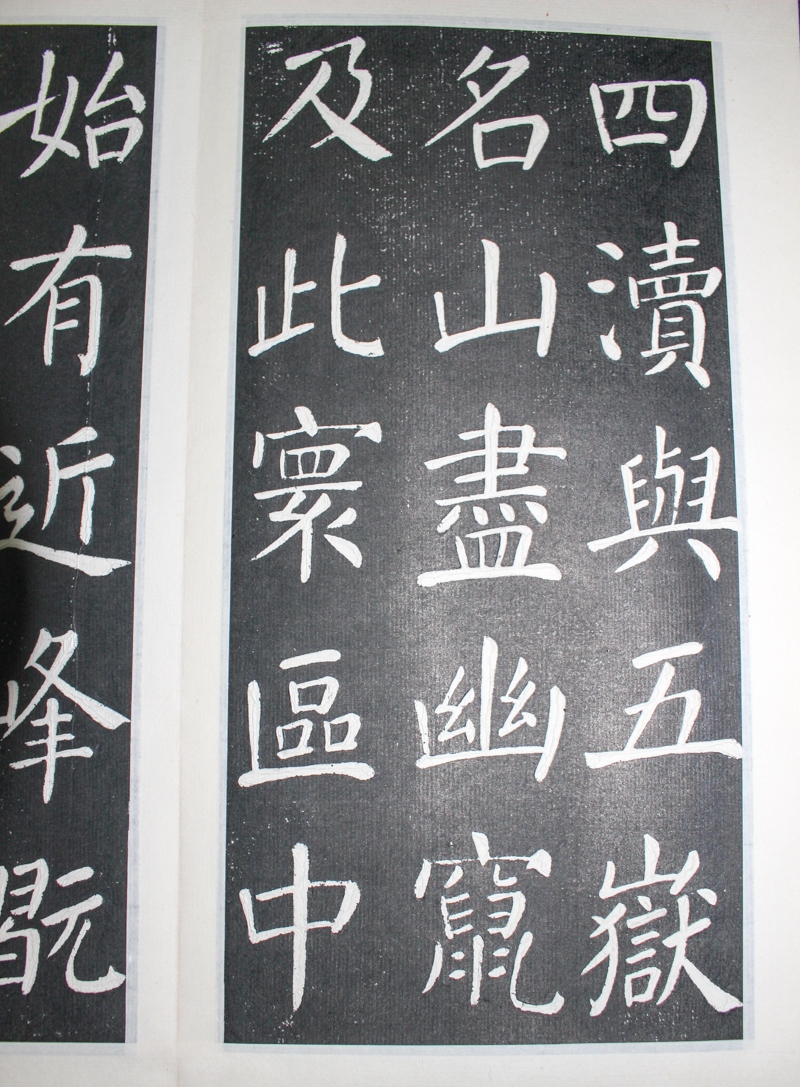 四瀆與五嶽
名山盡幽竄
及此寰區中
始有近峰翫